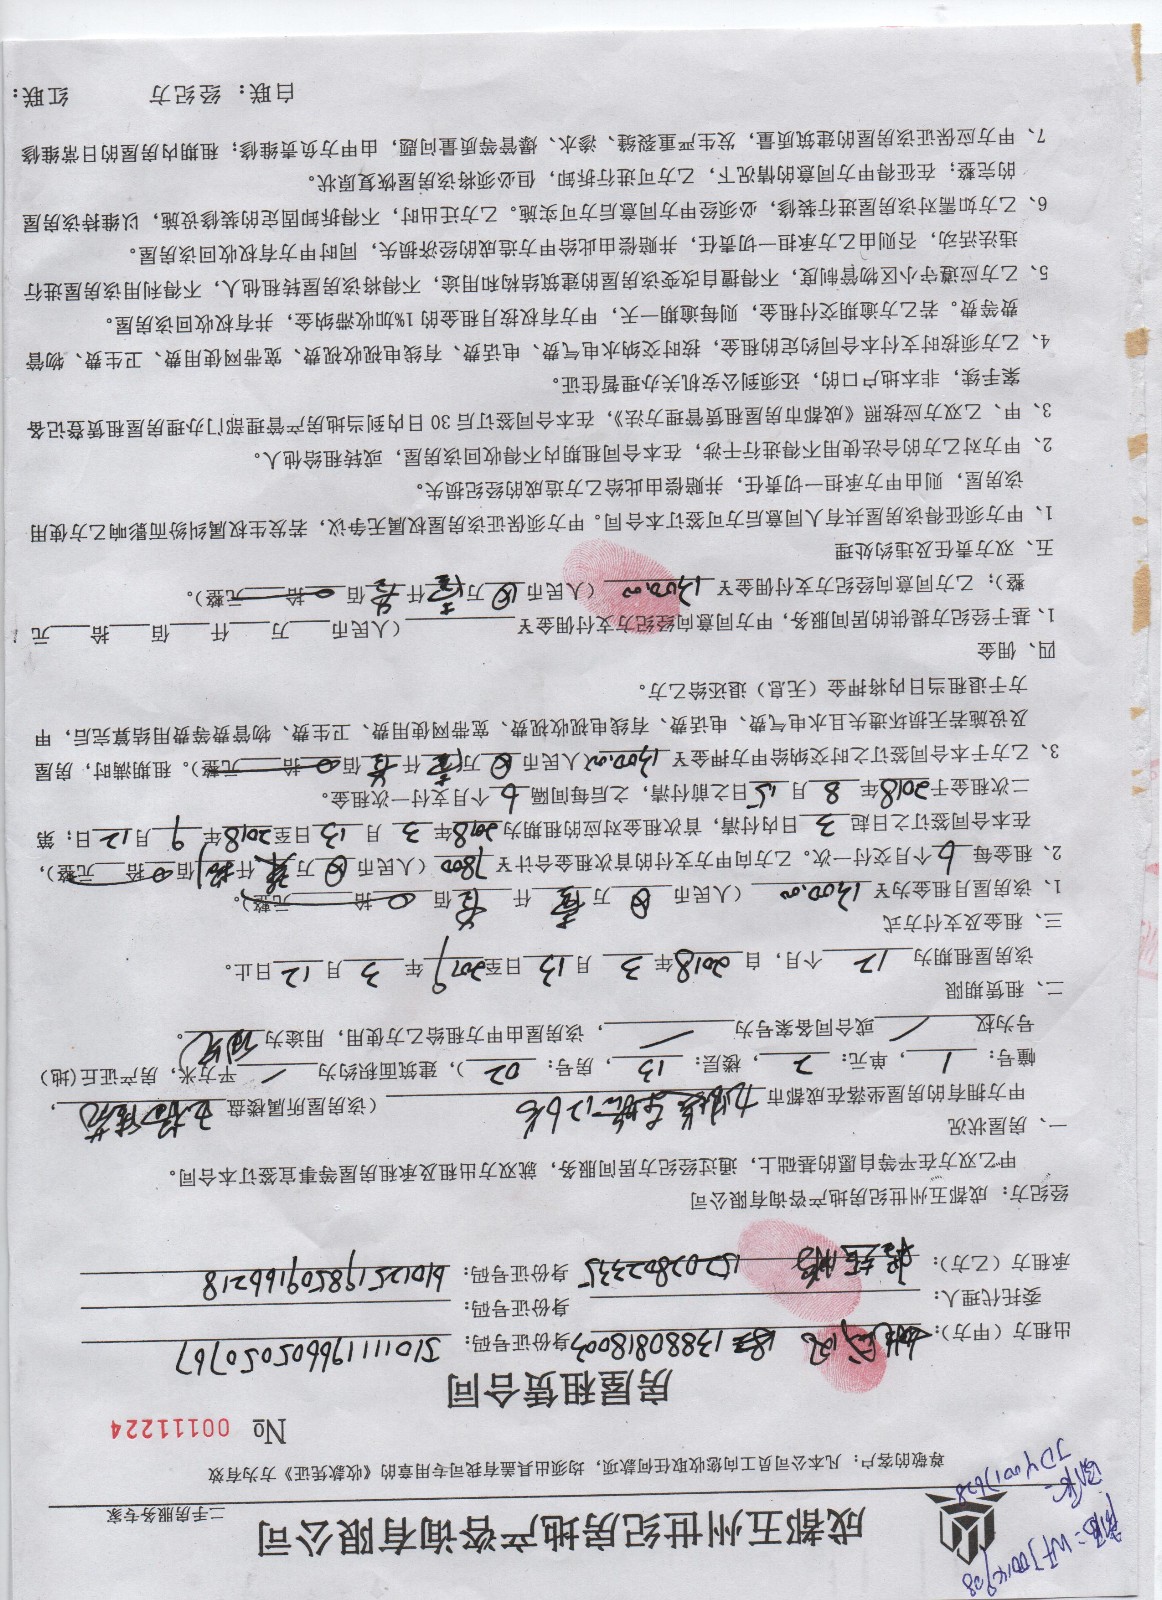 成都五州世纪房地产咨询有限公司
二手房服务专家
尊敬的客户：凡本公司员工向您收取任何款项，均须出具盖有我司专用章的《收款凭证》方为有效
№ 00111224
房屋租赁合同
出租方（甲方）： 13880818002 身份证号码：510111196605050767
委托代理人： 身份证号码：
承租方（乙方）： 15202802335 身份证号码：610125198509166218
经纪方：成都五州世纪房地产咨询有限公司
甲乙双方在平等自愿的基础上，通过经纪方居间服务，就双方出租及承租房屋等事宜签订本合同。
一、房屋状况
甲方拥有的房屋坐落在成都市 （该房屋所属楼盘 ，
幢号：1，单元：2，楼层：13，房号：02），建筑面积约为／平方米，房产证丘(地)
号为权／或合同备案号为／，该房屋由甲方租给乙方使用，用途为 。
二、租赁期限
该房屋租期为12个月，自2018年3月13日至2019年3月12日止。
三、租金及支付方式
1、该房屋月租金为￥1300.00（人民币⊗万壹仟叁佰0拾 元整）。
2、租金每6个月交付一次。乙方向甲方支付的首次租金合计￥7800（人民币⊗万柒仟捌佰0拾 元整），
在本合同签订之日起3日内付清，首次租金对应的租期为2018年3月13日至2018年9月12日；第
二次租金于2018年8月15日之前付清，之后每间隔6个月支付一次租金。
3、乙方于本合同签订之时交纳给甲方押金￥1300.00（人民币⊗万壹仟叁佰0拾 元整）。租期满时，房屋
及设施若无损坏遗失且水电气费、电话费、有线电视收视费、宽带网使用费、卫生费、物管费等费用结算完后，甲
方于退租当日内将押金（无息）退还给乙方。
四、佣金
1、基于经纪方提供的居间服务，甲方同意向经纪方支付佣金￥ （人民币 万 仟 佰 拾 元
整）；乙方同意向经纪方支付佣金￥1300.00（人民币⊗万壹仟叁佰0拾 元整）。
五、双方责任及违约处理
1、甲方须征得该房屋共有人同意后方可签订本合同。甲方须保证该房屋权属无争议，若发生权属纠纷而影响乙方使用
该房屋，则由甲方承担一切责任，并赔偿由此给乙方造成的经纪损失。
2、甲方对乙方的合法使用不得进行干涉，在本合同租期内不得收回该房屋，或转租给他人。
3、甲、乙双方应按照《成都市房屋租赁管理方法》，在本合同签订后 30 日内到当地房产管理部门办理房屋租赁登记备
案手续，非本地户口的，还须到公安机关办理暂住证。
4、乙方须按时支付本合同约定的租金，按时交纳水电气费、电话费、有线电视收视费、宽带网使用费、卫生费、物管
费等费。若乙方逾期交付租金，则每逾期一天，甲方有权按月租金的 1%加收滞纳金，并有权收回该房屋。
5、乙方应遵守小区物管制度，不得擅自改变该房屋的建筑结构和用途，不得将该房屋转租他人，不得利用该房屋进行
违法活动，否则由乙方承担一切责任，并赔偿由此给甲方造成的经济损失，同时甲方有权收回该房屋。
6、乙方如需对该房屋进行装修，必须经甲方同意后方可实施。乙方迁出时，不得拆卸固定的装修设施，以维持该房屋
的完整；在征得甲方同意的情况下，乙方可进行拆卸，但必须将该房屋恢复原状。
7、甲方应保证该房屋的建筑质量，发生严重裂缝、渗水、爆管等质量问题，由甲方负责维修；租期内房屋的日常维修
白联：经纪方 红联：